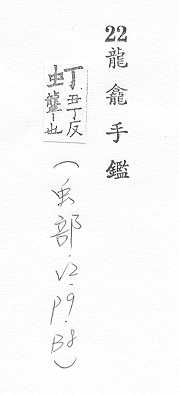 22龍龕手鑑
虰丑丁反虰蛵也
(虫部.V2.P9.B8)